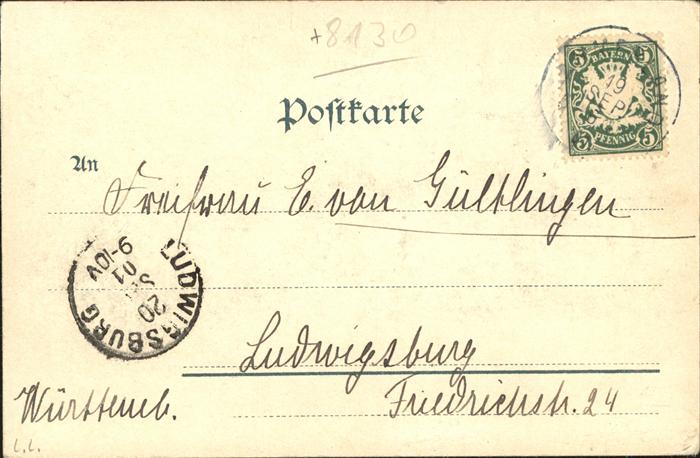 +8130
Postkarte
5 5
BAYERN
19
SEP
5 5
PFENNIG
An
Freifrau E. von Gültlingen
LUDWIGSBURG
20
01
9-10V
Ludwigsburg
Württemb.
Friedrichstr. 24